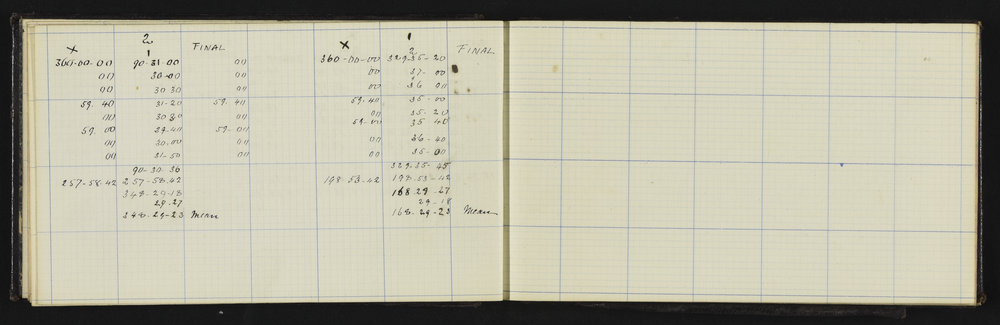 2 1
X 1 FINAL X 2 FINAL
360-00-00 90-31-00 00 360-00-00 329-35-20
00 30-00 00 00 37-00
00 30 30 00 00 36 00
59.40 31-20 59.40 59.40 35-00
00 30 00 00 35-20
59.00 29.40 59-00 59-00 35 40
00 30.00 00 00 36-40
00 31-50 00 00 35-00
90-30-36 329.35-45
257-58-42 257-58.42 198-53-42 198.53-42
348-29-18 168-29.27
29.27 29-18
348-29-23 Mean 168-29-23 Mean